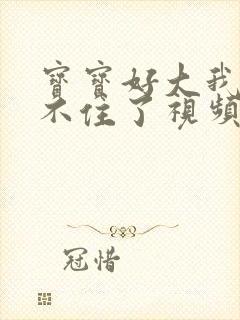 寶寶好大我
不住了視頻
冠惜